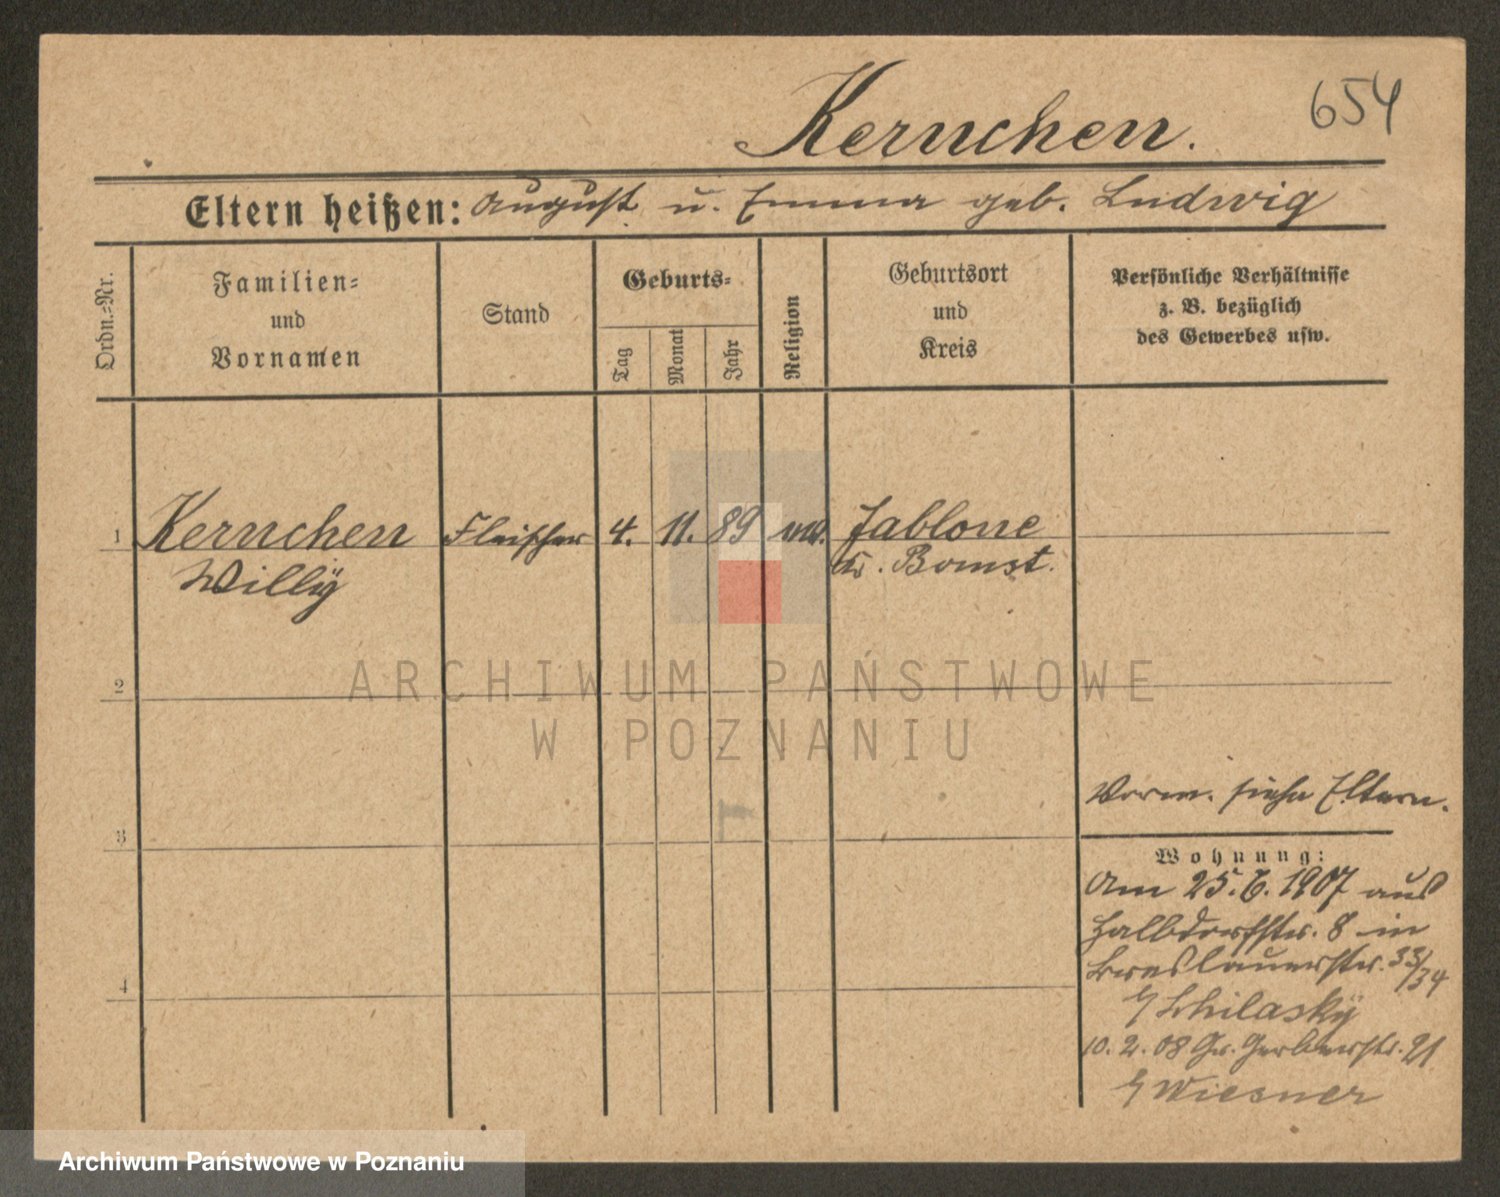 654
Kernchen.
Eltern heißen: August u. Emma geb. Ludwig
Ordn.=Nr.
Familien=
und
Vornamen
Stand
Geburts=
Tag
Monat
Jahr
Religion
Geburtsort
und
Kreis
Persönliche Verhältnisse
z. B. bezüglich
des Gewerbes usw.
1 Kernchen Fleischer 4. 11. 89 Jablone
Willÿ Kr. Bomst.
2
3
4
Vorm. siehe Eltern.
Wohnung:
Am 25. 6. 1907 aus
Halbdorfstr. 8 in
Breslauerstr. 33/34
10. 2. 08 Gr. Gerberstr. 21
Wiesner
ARCHIWUM PAŃSTWOWE
W POZNANIU
Archiwum Państwowe w Poznaniu